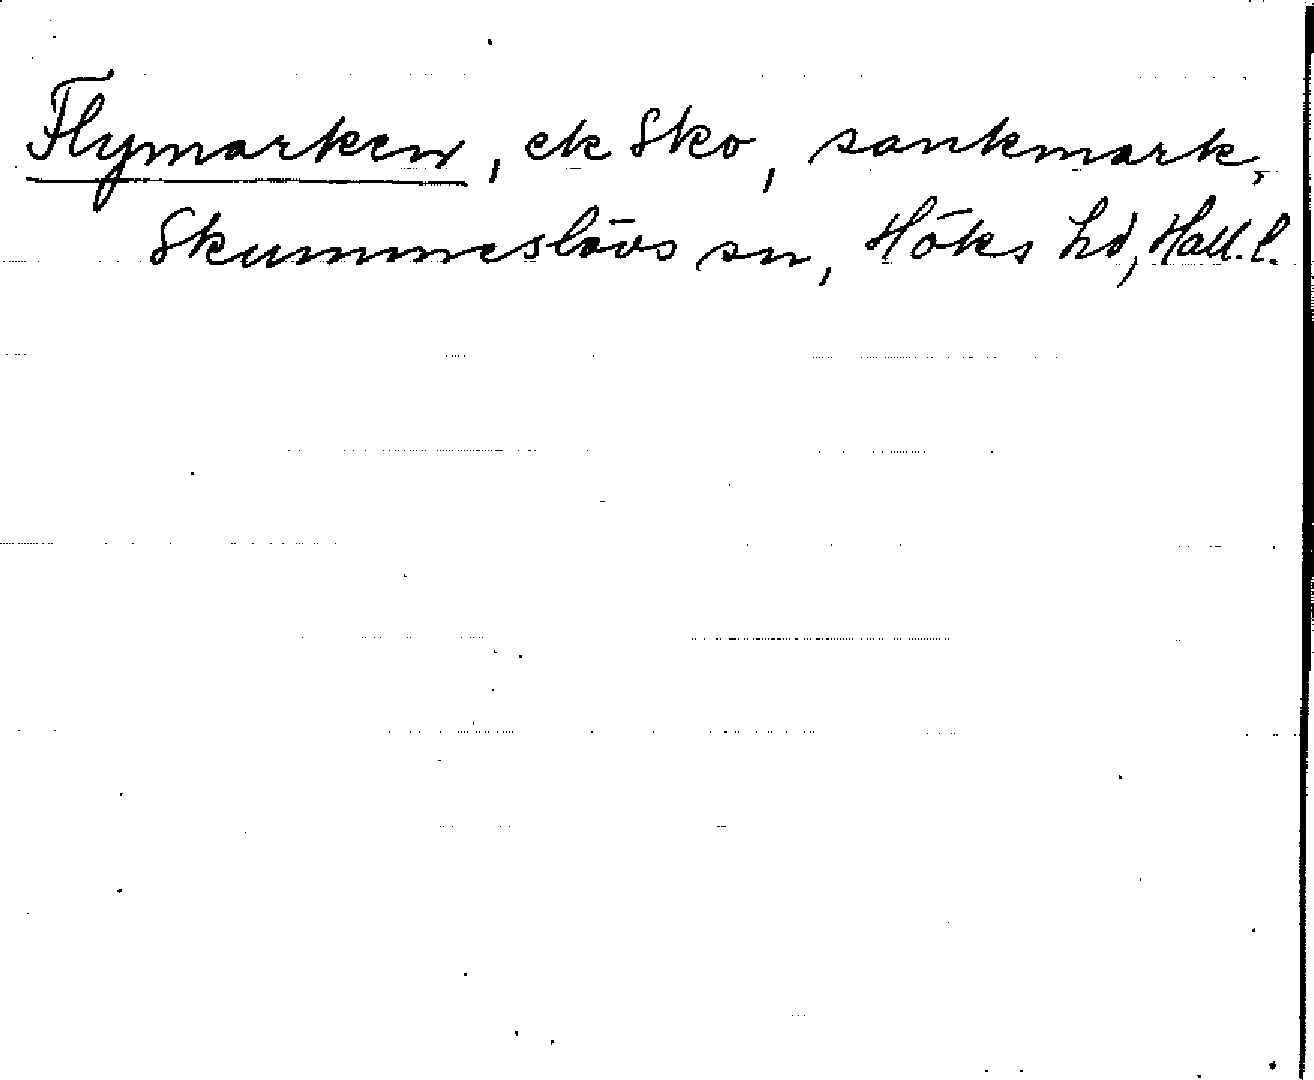 Flymarken, ek Sko, sankmark,
Skummeslövs sn, Höks hd, Hall. l.